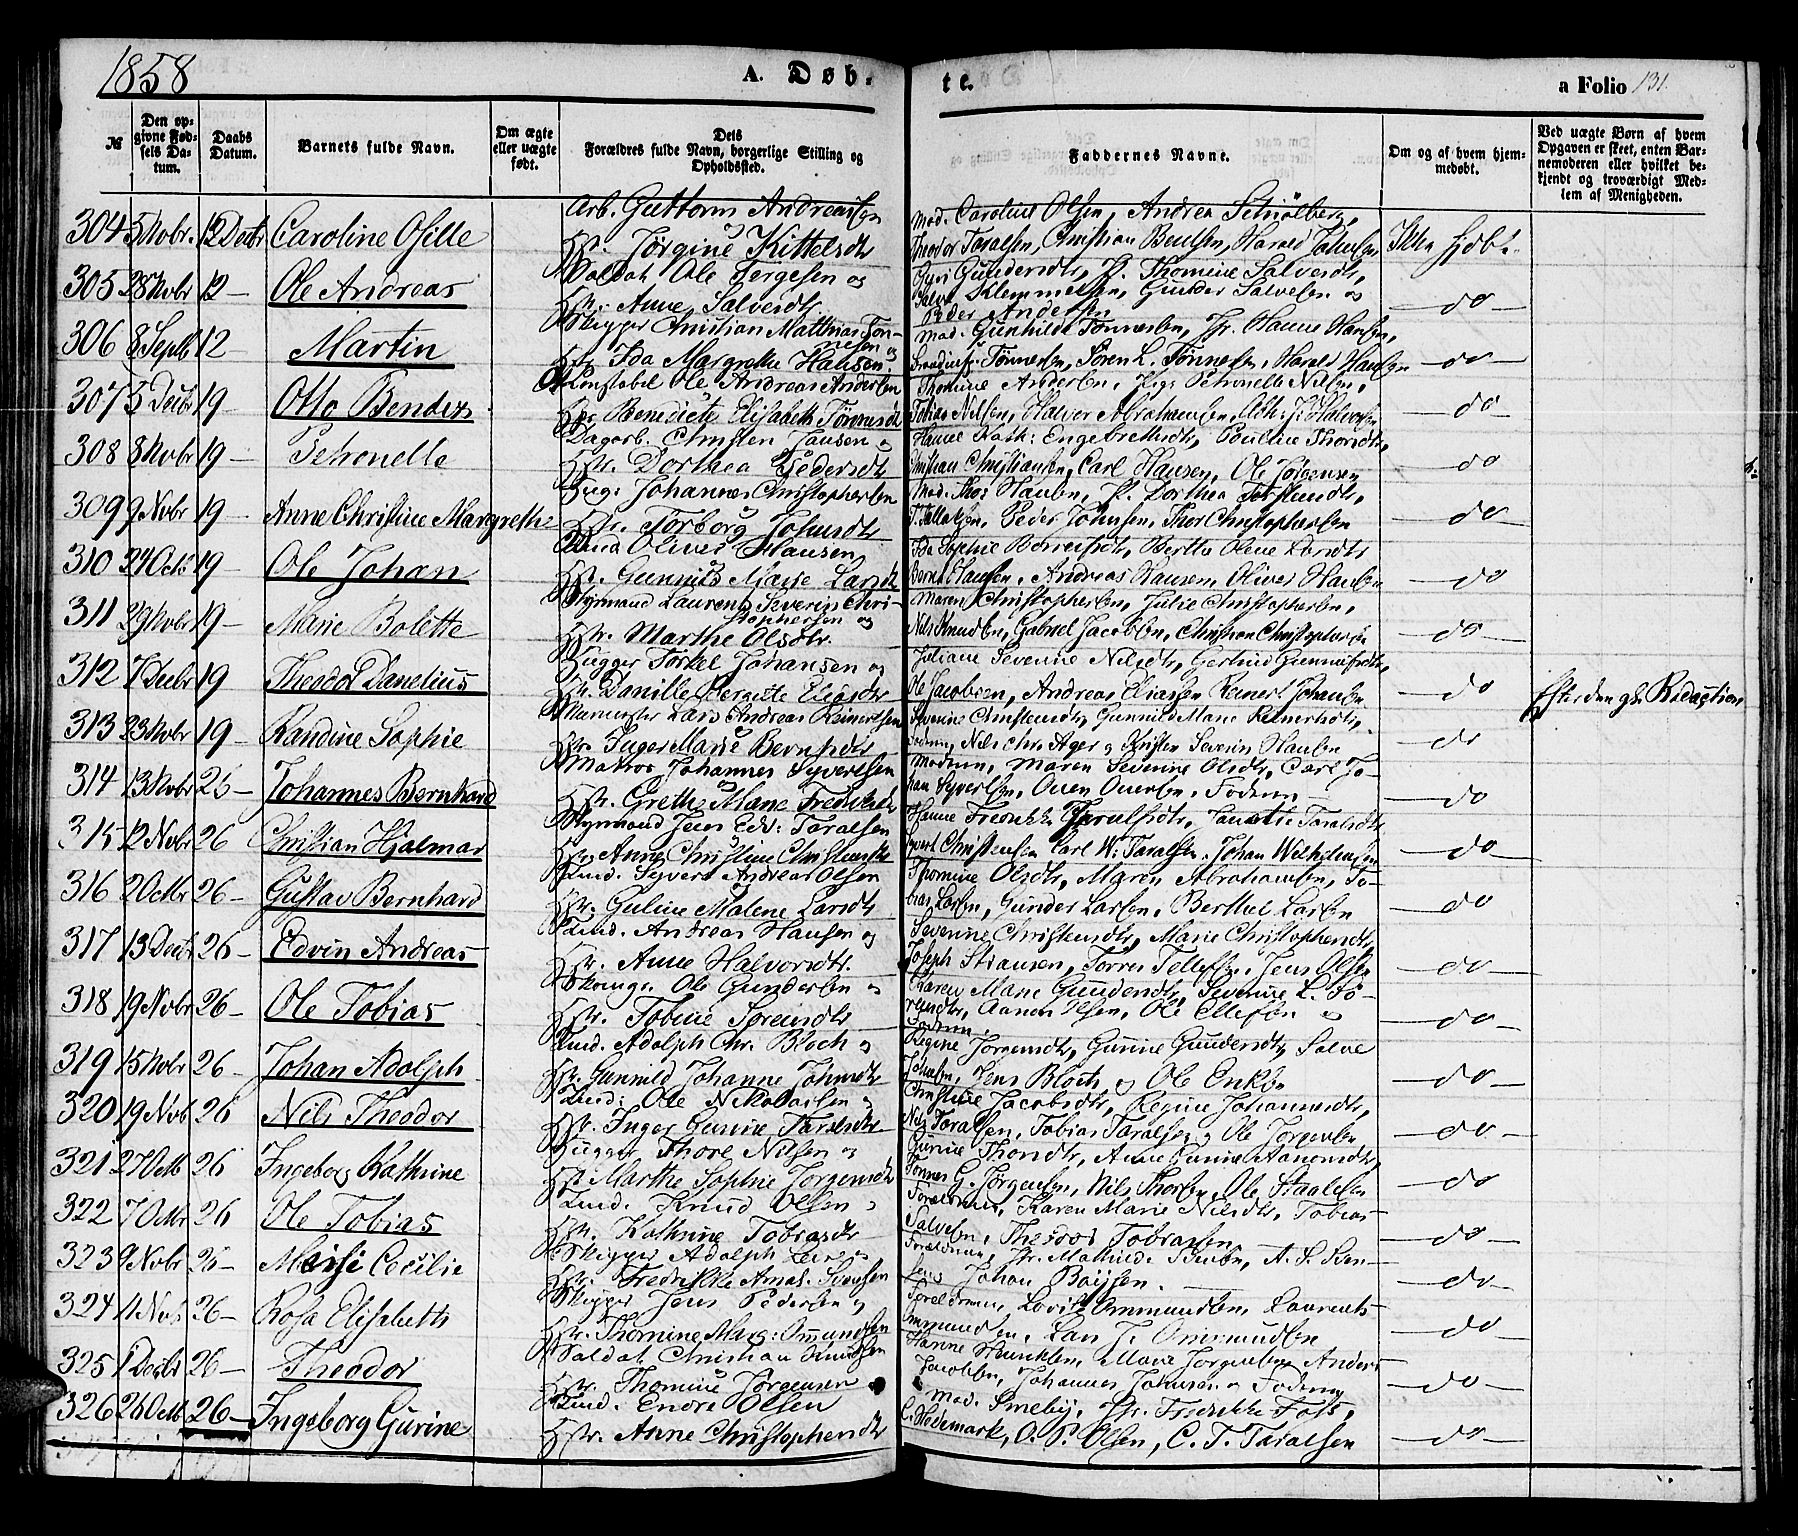 1858
A. Døb-
te.
a Folio 131.
№
Den op-
givne Fød-
sels Da-
tum.
Daabs
Datum.
Barnets fulde Navn.
Om ægte
eller uægte
født.
Dets
Forældres fulde Navn, borgerlige Stilling og
Opholdssted.
Faddernes Navne.
Om og af hvem hjem-
medøbt.
Ved uægte Børn af hvem
Opgaven er skeet, enten Bar-
nemoderen eller hvilket be-
kjendt og troværdigt Med-
lem af Menigheden.
304 5 Novbr. 12 Decbr Caroline Osille
Arb. Guttorm Andreassen
Hstr. Jørgine Kittelsdtr
Mad. Caroline Olsen, Andrea Schiølberg,
Theodor Taralsen, Christian Bentsen, Harald Johnsen
Ikke hjdbt.
305 28 Novbr 12 — Ole Andreas
Soldat Ole Tergesen og
Hstr. Anne Salvesdtr
Gyri Gundersdtr, P. Thomine Salvesdtr,
Salve Klemmetsen, Gunder Salvesen og
Peder Andersen
— do —
306 8 Septb 12 — Martin
Skipper Christian Matthias Tøn-
nesen og
Hstr. Ida Margrethe Hansen
Mad. Gunhilde Tønnesen, Jfr. Hanne Hansen,
Tønnesen, Søren L. Tønnesen, Harald Hansen
— do —
307 5 Decbr 19 — Otto Bendix
Constabel Ole Andreas Andersen
Hstr. Benedicte Elisabeth Tørresdtr
Thomine Andersen, Pige Petronelle Nilsen,
Tobias Nilsen, Halvor Abrahamsen, Halvorsen
— do —
308 8 Novbr 19 — Petronelle
Dagarb. Christen Jansen og
Hstr. Dorthea Pedersdtr
Hanne Kath: Engebrethsdtr, Pouline Thorsdtr,
Christian Christiansen, Carl Hansen, Ole Jørgensen
— do
309 9 Novbr 19 — Anne Christine Margrethe
Johannes Christophersen
Hstr. Torborg Johnsdtr
Mad. Ths: Hansen, P. Dorthea Torslundtr,
T. Tellefsen, Peder Johnsen, Thor Christophersen
— do
310 24 Octb 19 — Ole Johan
Oliver Hansen
Hstr. Gunnild Marie Larsdtr
Ida Sophie Berresdtr, Berthe Olene Larsdtr
Bernt Hansen, Andreas Hansen, Oliver Hansen
— do
311 29 Novbr 19 — Marie Bolette
Styrmand Laurentz Severin Chri-
stophersen og
Hstr. Marthe Olsdtr.
Maren Christophersen, Julie Christophersen,
Nils Knudsen, Gabriel Jacobsen, Christian Christophersen
— do —
312 7 Decbr 19 Theodor Danelius
Hugger Torkel Johansen og
Hstr. Danille Bergitte Eliasdtr
Juliane Severine Nilsdtr, Gertrud Gunnufsdtr,
Ole Jacobsen, Andreas Eliassen Reinert Johansen
— do
Efter den gl. Redaction
313 23 Novbr 19 — Randine Sophie
Lars Andreas Reinertsen
Hstr. Inger Marie Berntsdtr
Severine Christensdtr, Gunnild Marie Reinertsdtr,
Faderen, Nils Chr. Ager og Kristen Severin Hansen
— do
314 13 Novbr 26 — Johannes Bernhard
Matros Johannes Syvertsen
Hstr. Grethe Marie Fredriksdtr
Moderen, Maren Severine Olsdtr, Carl Jo-
han Syvertsen, Ouen Ouensen, Faderen —
— do
315 12 Novbr 26 Christian Hjalmar
Styrmand Jens Edv: Taralsen
Hstr. Anne Christine Christensdtr
Hanne Fredrikke Taralsdtr, Janette Taralsdtr
Syvert Christensen Carl W: Taralsen, Johan Wilhelmsen
— do —
316 2 Octbr 26 — Gustav Bernhard
Tmd. Syvert Andreas Olsen
Hstr. Guline Malene Larsdtr
Thomine Olsdtr, Maren Abrahamsen, To-
bias Larsen, Gunder Larsen, Berthel Larsen
— do
317 13 Decbr 26 — Edvin Andreas
Tmd. Andreas Hansen og
Hstr. Anne Halvorsdtr.
Severine Christensdtr, Marie Christophersdtr,
Joseph Stiansen, Torres Tellefsen, Jens Olsen
— do —
318 19 Novbr 26 — Ole Tobias
Ole Gundersen og
Hstr. Tobine Sørensdtr
Karen Marie Gundersdtr, Severine L. Sø-
rensdtr, Aanon Olsen, Ole Ellefsen og
Faderen.
— do —
319 15 Novbr 26 Johan Adolph
Tmd. Adolph Chr. Bloch og
Hstr. Gunnild Johanne Johnsdtr
Regine Jørgensdtr, Gurine Gundersdtr, Salve
Johnsen, Jens Bloch og Ole
— do —
320 19 Novb 26 Nils Theodor
Tmd: Ole Nikolaisen og
Hstr. Inger Gurine Taralsdtr
Christine Jacobsdtr, Regine Johannesdtr,
Nils Taralsen, Tobias Taralsen og Ole Jørgensen
— do —
321 27 Octb 26 Ingeborg Kathrine
Hugger Thore Nilsen og
Hst Marthe Sophie Jørgensdtr
Gurine Thorsdtr, Anne Gurine Aanonsdtr,
Tønnes G. Jørgensen, Nils Thorsen, Ole Staalesen
— do
322 7 Octbr 26 Ole Tobias
Tmd. Knud Olsen og
Hstr. Kathrine Tobiasdtr
Forældrene, Karen Marie Nilsdtr, Tobias
Salvesen, Theodor Tobiassen
— do —
323 9 Novbr 26 — Maisi Cecilie
Skipper Adolph
Hstr. Fredrikke Amas. Svensen
Forældrene, Jfr. Mathilde A. S. Sven-
sen, Johan Boysen.
— do —
324 11 Novb 26 — Rosa Elisabeth
Skipper Jens Pedersen og
Hstr. Thomine Marg: Omundsen
Forældrene, Lovise Ommundsen, Laurents
Ommundsen, Lars J. Ommundsen
— do
325 1 Decbr 26 — Theodor
Soldat Christian Knudsen
Hstr. Thomine Jørgensen
Hanne Henriksen, Marie Jørgensen Anders
Jacobsen, Johannes Johnsen og Faderen
— do —
326 20 Octb 26 — Ingeborg Gurine
Tmd. Endre Olsen
Hstr. Anne Christophersdtr
Mad. Smeby, Jfr. Fredrikke Foss,
C. Hedemark, O. P. Olsen, C. T. Taralsen
— do —